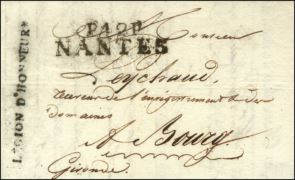 LEGION D'HONNEUR
P.42.P.
NANTES
Monsieur
Peychaud,
receveur de l'enregistrement & des
domaines
A Bourg
Gironde.